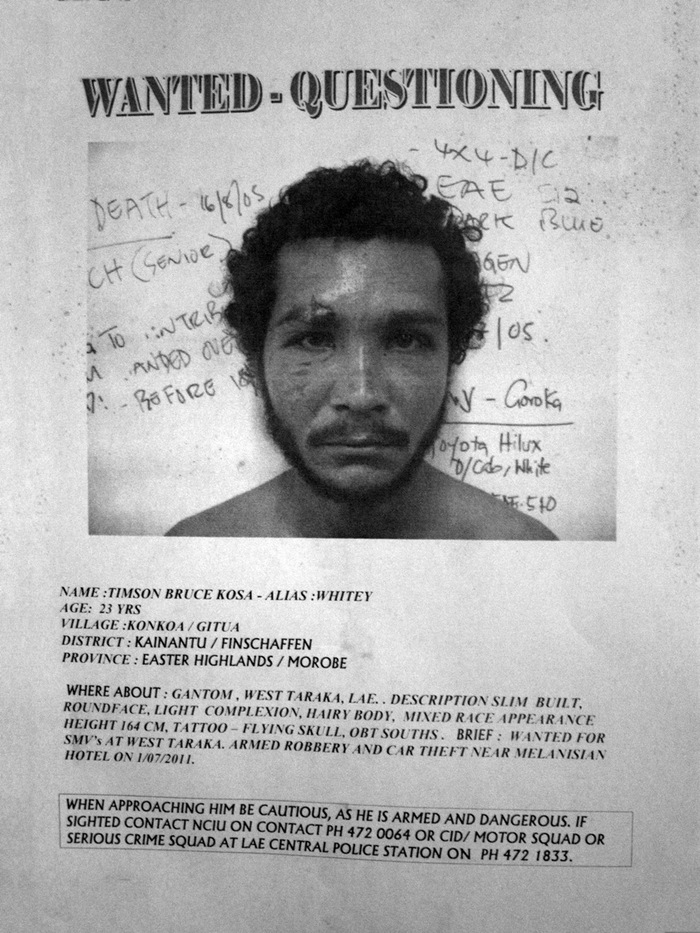 WANTED - QUESTIONING
DEATH - 16/8/05
CH (SENIOR)
TO
ANDED OVE
BEFORE
- 4X4-D/C
EAE 512
DARK BLUE
AGEN
/05.
- Goroka
oyota Hilux
D/Cab, White
NAME :TIMSON BRUCE KOSA - ALIAS :WHITEY
AGE: 23 YRS
VILLAGE :KONKOA / GITUA
DISTRICT : KAINANTU / FINSCHAFFEN
PROVINCE : EASTER HIGHLANDS / MOROBE
WHERE ABOUT : GANTOM , WEST TARAKA, LAE. . DESCRIPTION SLIM BUILT,
ROUNDFACE, LIGHT COMPLEXION, HAIRY BODY, MIXED RACE APPEARANCE
HEIGHT 164 CM, TATTOO – FLYING SKULL, OBT SOUTHS . BRIEF : WANTED FOR
SMV's AT WEST TARAKA. ARMED ROBBERY AND CAR THEFT NEAR MELANISIAN
HOTEL ON 1/07/2011.
WHEN APPROACHING HIM BE CAUTIOUS, AS HE IS ARMED AND DANGEROUS. IF
SIGHTED CONTACT NCIU ON CONTACT PH 472 0064 OR CID/ MOTOR SQUAD OR
SERIOUS CRIME SQUAD AT LAE CENTRAL POLICE STATION ON PH 472 1833.